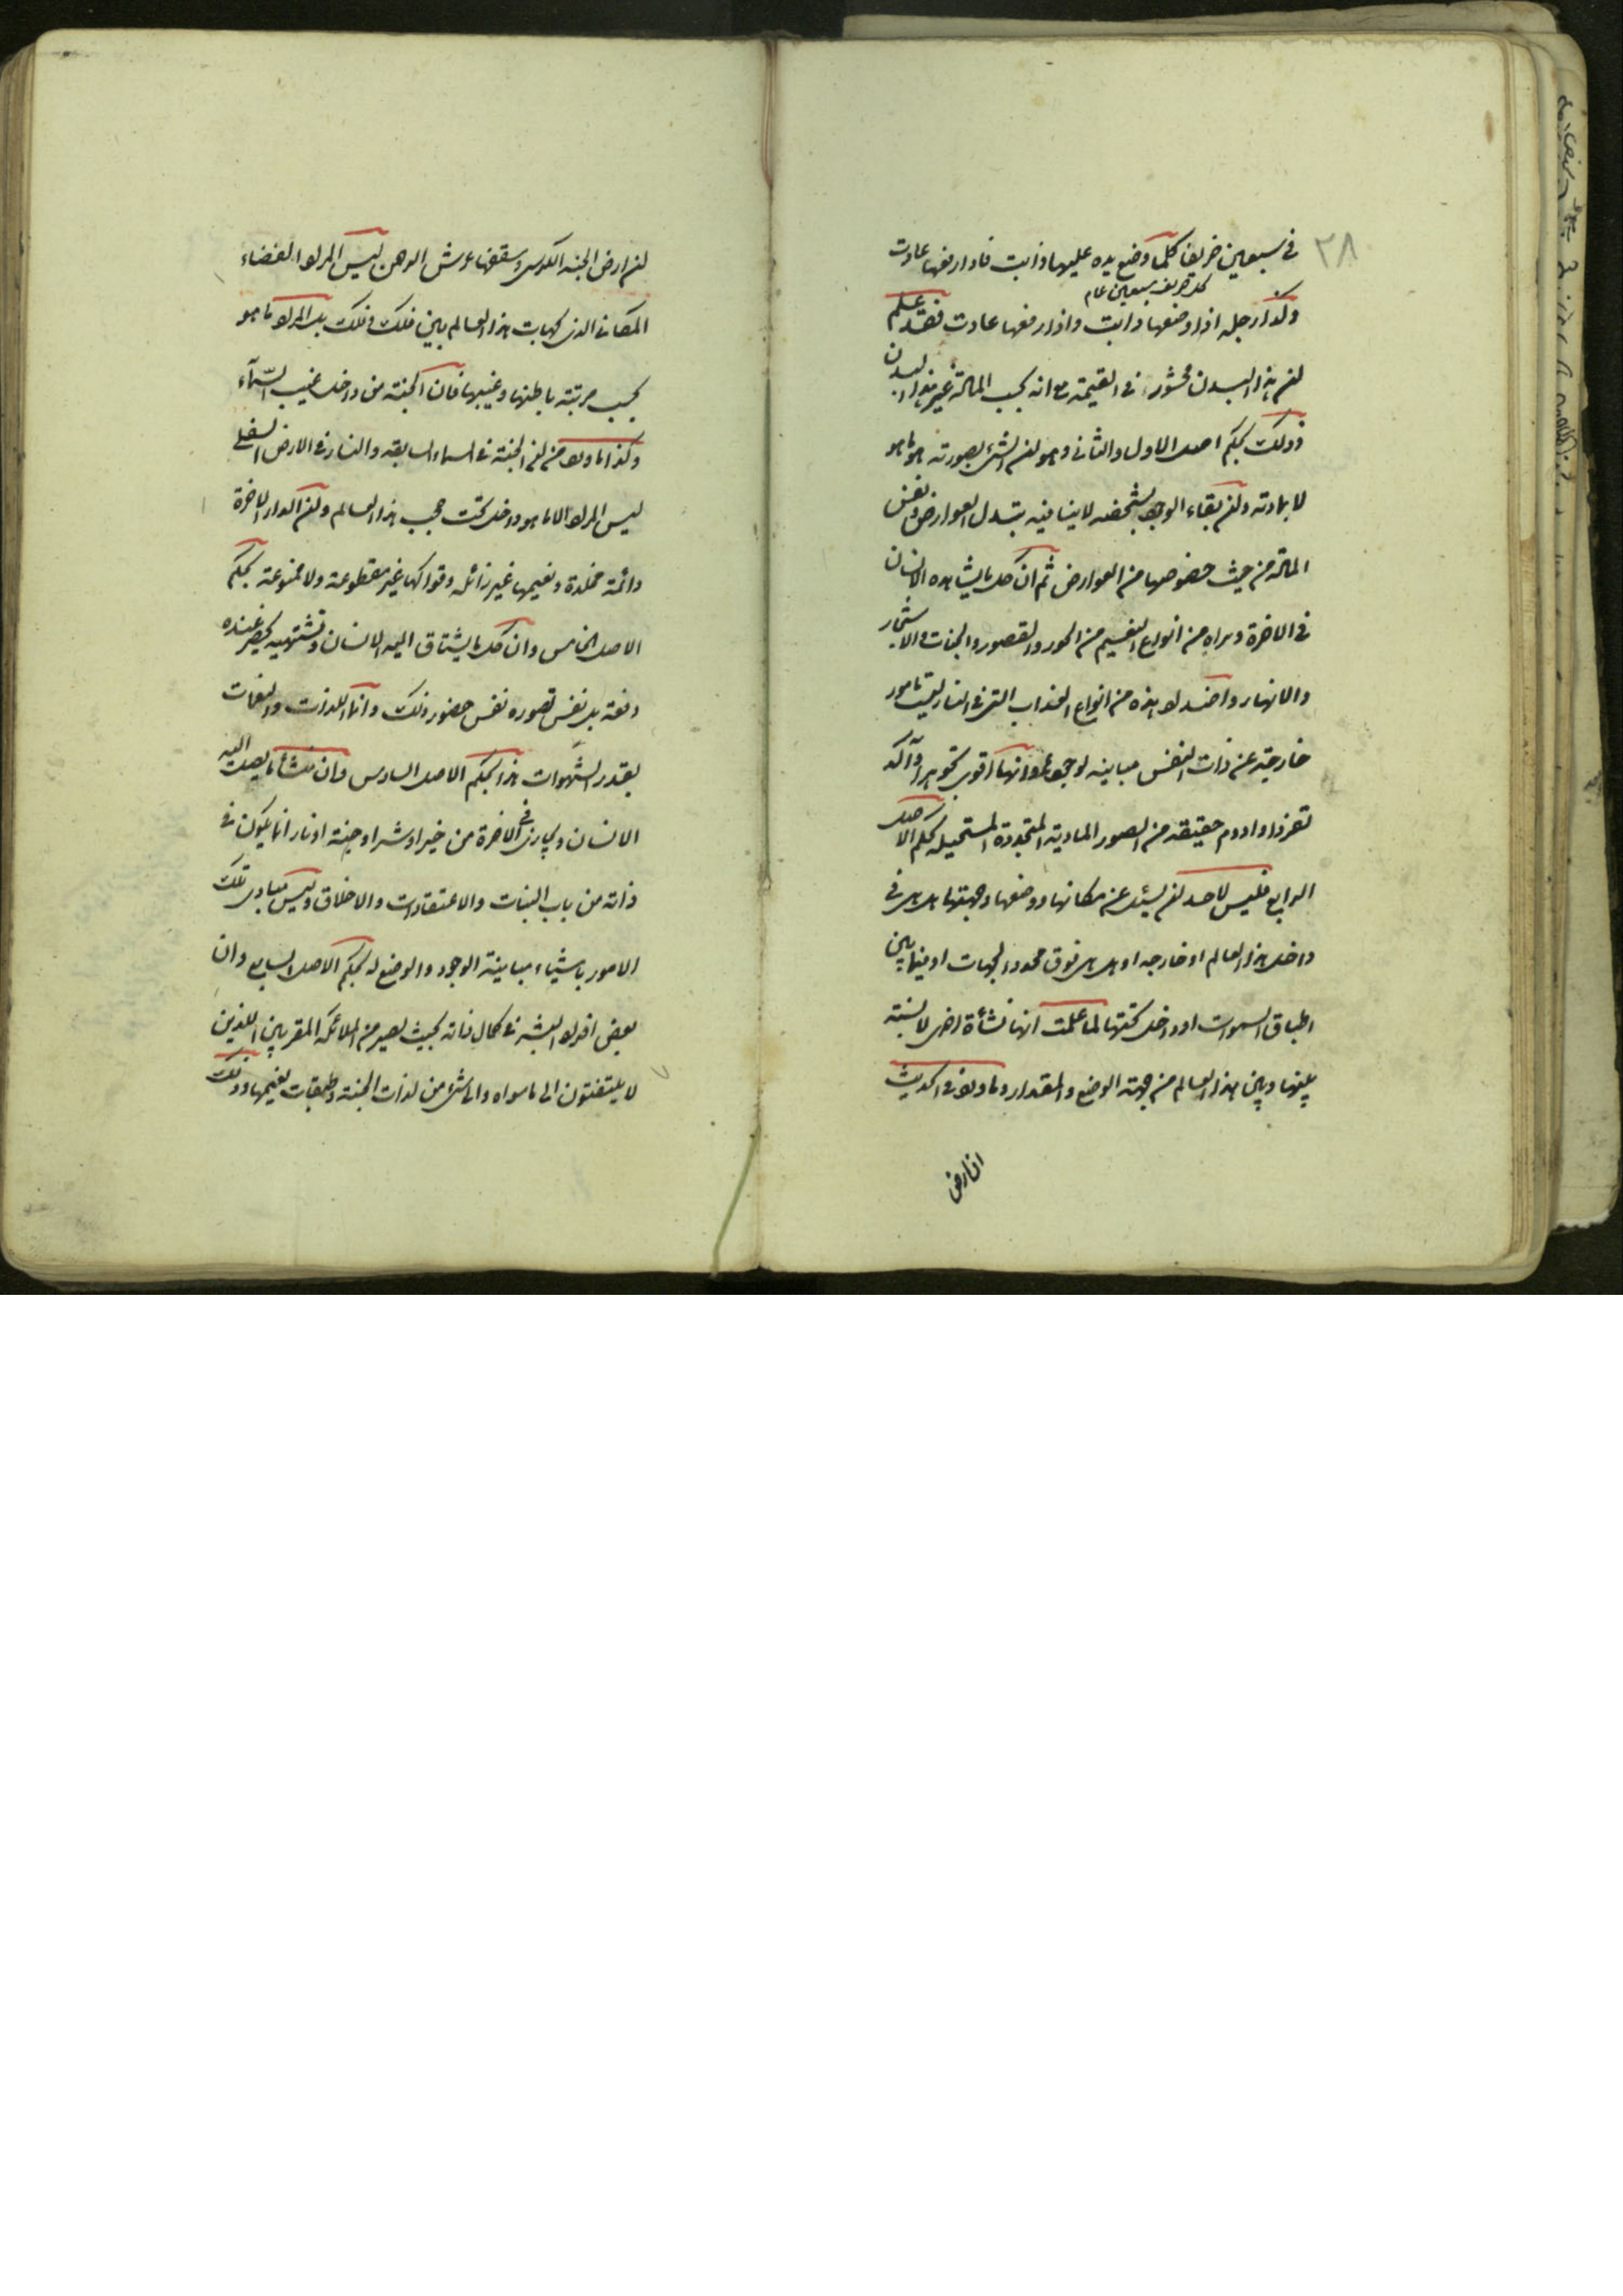 ٢٨
في سبعين خريفا كلما وضع يده عليها ذابت فاذا رفعها عادت
كل خريف سبعين عام
وكذا رجله اذا وضعها ذابت واذا رفعها عادت فقد علم
ان هذا البدن محشور في القيمة مع انه بحسب المادة غير هذا البدن
وذلك بحكم اصل الاول والثاني وهو ان الشئ بصورته هو ما هو
لا بمادته وان بقاء الوجود بشخصه لا ينافيه بتبدل العوارض ونفس
المادة من حيث خصوصها من العوارض ثم ان كل ما يشاهده الانسان
في الاخرة ويراه من انواع النعيم من الحور والقصور والجنات والاشجار
والانهار واضداد هذه من انواع العذاب التي في النار ليست بامور
خارجة عن ذات النفس مباينة لوجودها وانها اقوى تجوهرا وآكد
تقررا وادوم حقيقة من الصور المادية المتجددة المستحيلة بحكم الاصل
الرابع فليس لاحد ان يسئل عن مكانها ووضعها وجهتها هل هي في
داخل هذا العالم او خارجه او هل هي فوق محدد الجهات او فيما بين
اطباق السموات او داخل تحتها لما علمت انها نشأة اخرى لا نسبة
بينها وبين هذا العالم من جهة الوضع والمقدار وما ورد في الحديث
ان ارض
ان ارض الجنة الكرسي وسقفها عرش الرحمن ليس المراد الفضاء
المكاني الذي لجهات هذا العالم بين فلك وفلك بل المراد ما هو
بحسب مرتبة باطنها وغيبها فان الجنة من داخل غيب السمآء
وكذا ما ورد من ان الجنة في السماء السابعة والنار في الارض السفلى
ليس المراد الا ما هو داخل تحت حجب هذا العالم وان الدار الاخرة
دائمة مخلدة ونعيمها غير زائل وفواكها غير مقطوعة ولا ممنوعة بحكم
الاصل الخامس وان كل ما يشتاق اليه الانسان وتشتهيه يحضر عنده
دفعة بل نفس تصوره نفس حضور ذلك وانما اللذات والنغمات
بقدر الشهوات هذا بحكم الاصل السادس وان منشأ ما يصل اليه
الانسان ويجازى في الاخرة من خير او شر او جنة او نار انما يكون في
ذاته من باب النيات والاعتقادات والاخلاق وليس مبادى تلك
الامور باشياء مباينة الوجود والوضع له بحكم الاصل السابع وان
بعض افراد البشر في كمال ذاته بحيث يصير من الملائكة المقربين الذين
لا يلتفتون الى ما سواه والى شئ من لذات الجنة وطبقات نعيمها وذلك